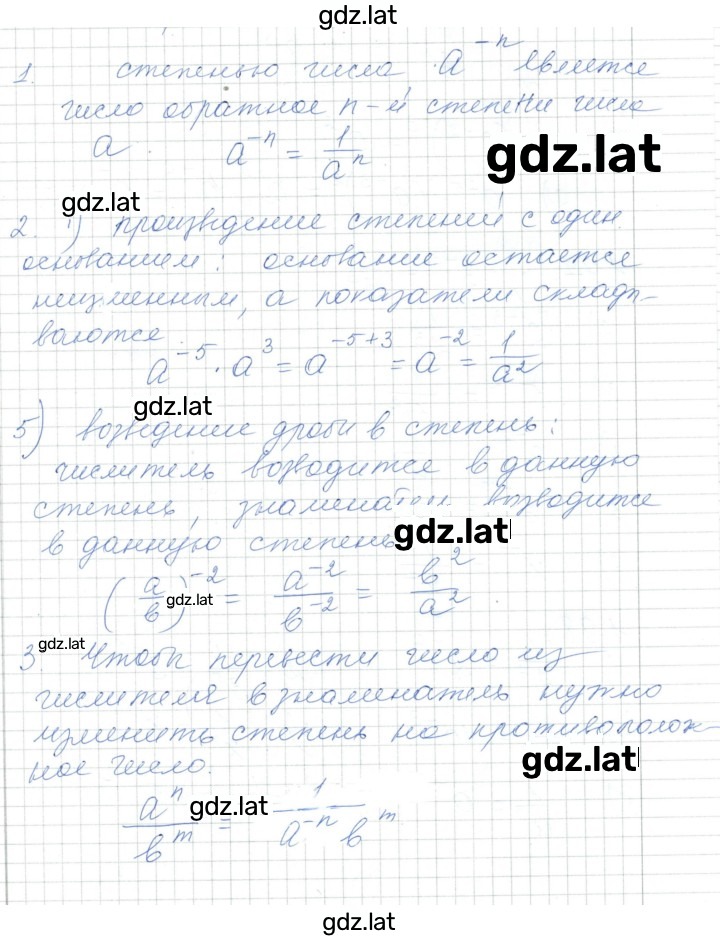 gdz.lat
1. степенью числа a^{-n} является
число обратное n-й степени числа
a. a^{-n} = \frac{1}{a^n}
gdz.lat
gdz.lat
2. 1) произведение степеней с один.
основанием: основание остается
неизменным, а показатели склады-
ваются.
a^{-5} · a^3 = a^{-5+3} = a^{-2} = \frac{1}{a^2}
gdz.lat
5) возведение дроби в степень:
числитель возводится в данную
степень, знаменатель возводится
в данную степень
gdz.lat
(\frac{a}{b})^{-2} = \frac{a^{-2}}{b^{-2}} = \frac{b^2}{a^2}
gdz.lat
gdz.lat
3. Чтобы перевести число из
числителя в знаменатель нужно
изменить степень на противополож-
ное число.
gdz.lat
\frac{a^n}{b^m} = \frac{1}{a^{-n} b^m}
gdz.lat
gdz.lat